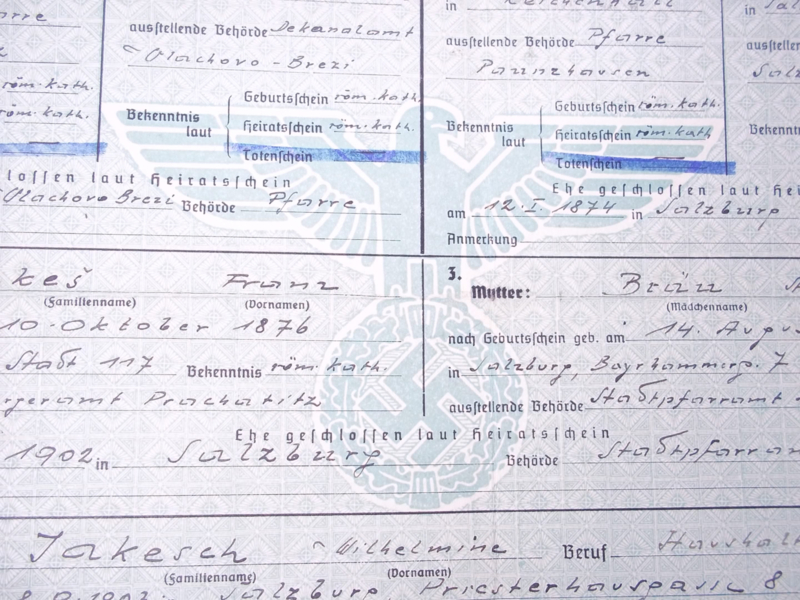 in Reichenhall in
arre ausstellende Behörde Dekanalamt ausstellende Behörde Pfarre ausstellen
Vlachovo-Brezi Pannzhausen Salz
röm. kath. Geburtsschein röm. kath. Geburtsschein röm. kath.
röm. kath. Bekenntnis laut Heiratsschein röm. kath. Bekenntnis laut Heiratsschein röm. kath. Bekenntn
Totenschein Totenschein
lossen laut Heiratsschein Ehe geschlossen laut Hei
Vlachovo Brezi Behörde Pfarre am 12. I. 1874 in Salzburg
Anmerkung
keš Franz 3. Mutter: Bräu
(Familienname) (Vornamen) (Mädchenname)
10. Oktober 1876 nach Geburtsschein geb. am 14. Augus
Stadt 117 Bekenntnis röm. kath. in Salzburg, Bayrhammerg. 7
rgeramt Prachatitz ausstellende Behörde Stadtpfarramt
Ehe geschlossen laut Heiratsschein
1902 in Salzburg Behörde Stadtpfarram
Jakesch Wilhelmine Beruf Haushalt
(Familienname) (Vornamen)
1902 Salzburg Priesterhausgasse 8